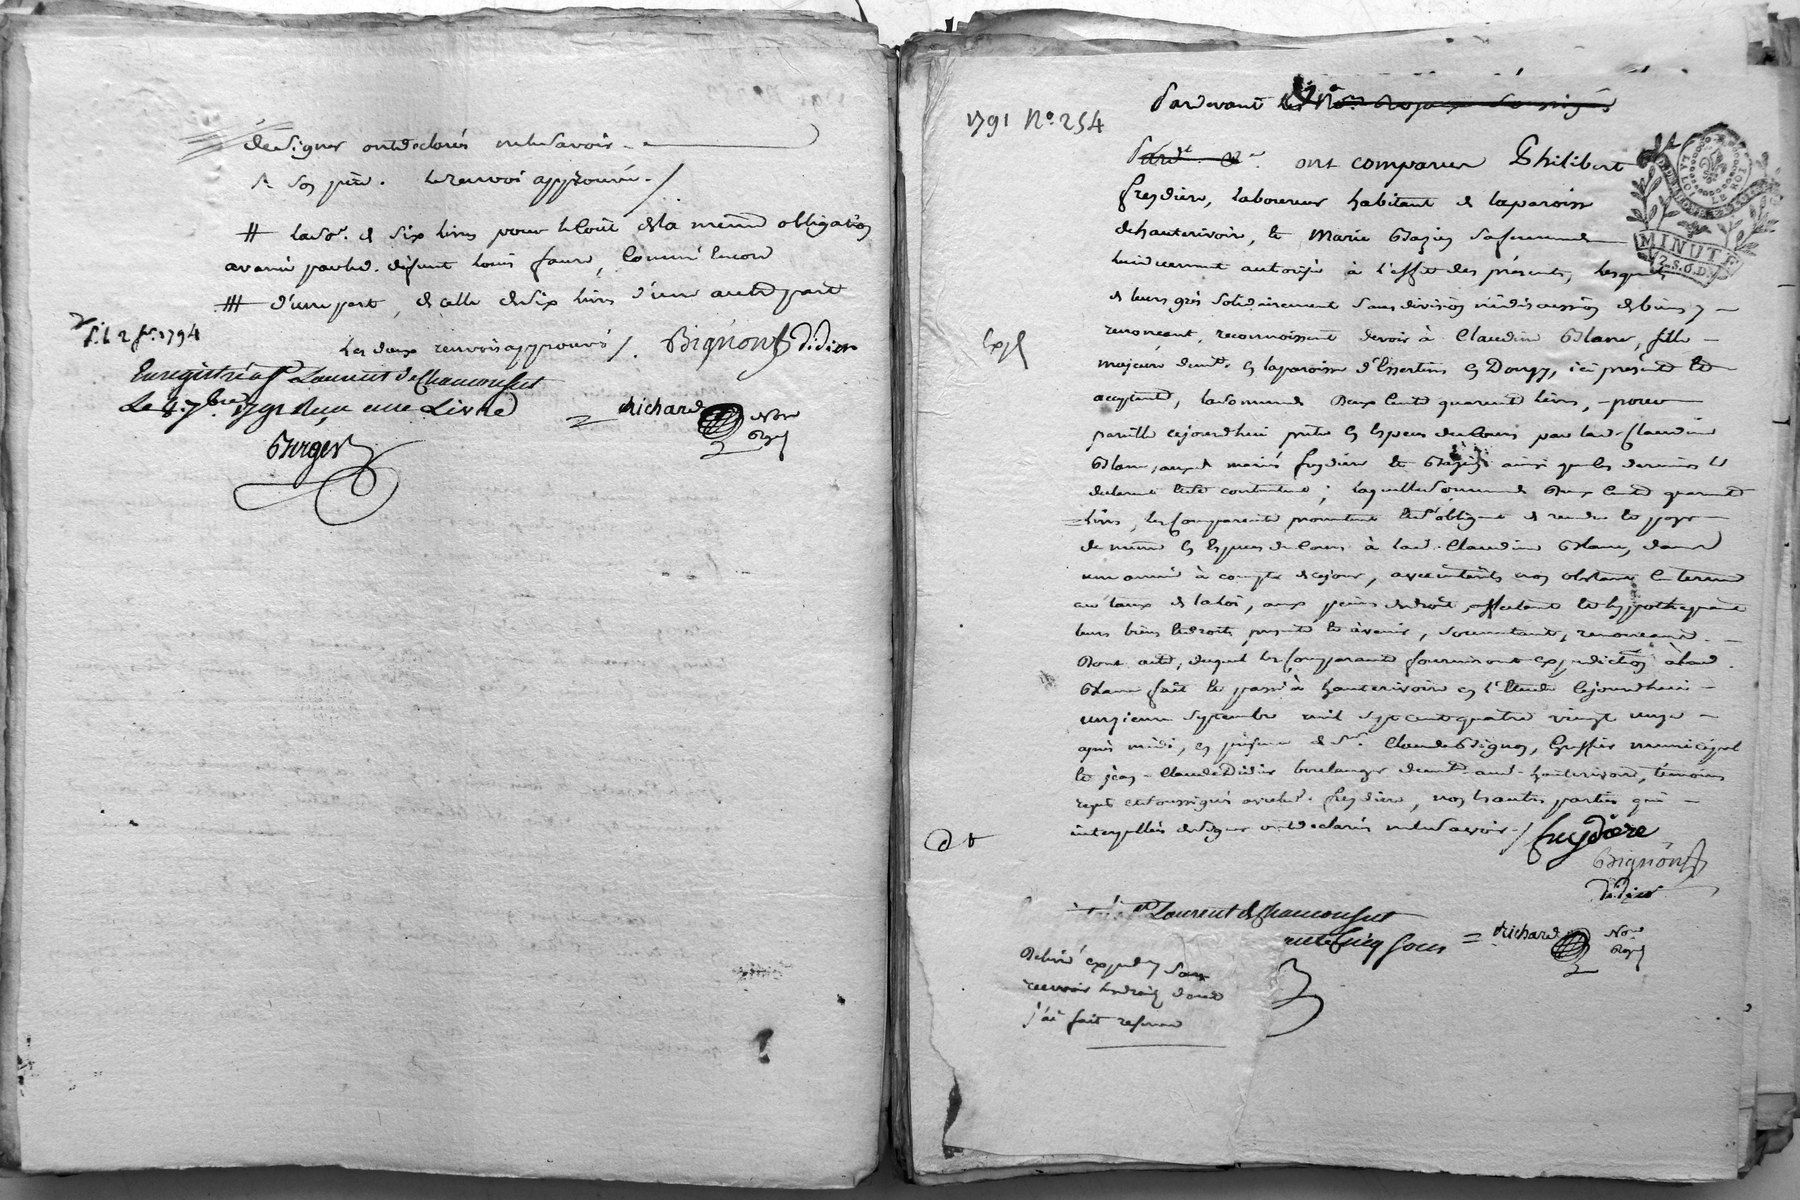 de signer ont déclarés ne le savoir
son père. le renvoi approuvé. /
# lad. so. de six livres pour le coût de la meme obligation
avanie par led. défunt Louis faure, comme encore
d'une part, de celle de six livres d'une autre part
les deux renvois approuvés /. Bignon Didier
Enregistré à St Laurent de Chamousset
Le 7.bre 1791 Reçu une Livre
= Richard Nore Royal
Berger
1791 No. 254
Pardevant les Nore. Royaux soussignés
Pardt. ont comparu Philibert
freydiere, laboureur habitant de la paroisse
d'hauterivoire, et Marie sa femme
de lui duement autorisée à l'effet des présentes, lesquels
de leurs grés solidairement sans division ni discussion de biens y
renonceant, reconnoissent devoir à Claudine Blanc, fille
majeure demt. en la paroisse d'Essertines en Donzy, ici présente et
acceptante, la somme de Deux Cents quarente livres, pour
pareille cejourdhui pretée en Especes de Cours par lad. Claudine
Blanc, auxd. mariés freydiere et ainsi que les derniers le
declarent et s'en contentent; laquelle somme de Deux Cents quarente
livres, les Comparants promettent et s'obligent de rendre et payer
de meme en Especes de Cours à lad. Claudine Blanc, dans
une année à compter de ce jour, avec intérêts non obstant le terme
au taux de la loi, aux peines de droit, affectant et hypothequant
leurs biens et droits, présents et à venir, soumettant, renonceant.
Dont acte, duquel les Comparants fourniront expedition à lad.
Blanc fait et passé à hauterivoire en l'Etude Cejourdhui
onzieme septembre mil sept cent quatre vingt onze
après midi, en présence de Sr. Claude Bignon, Greffier municipal
et jean-Claude Didier boulanger demts. aud. hauterivoire, témoins
requis et soussignés avec led. freydiere, non les autres parties qui
interpellées de signer ont déclarés ne le savoir. / freydiere
Bignon
Didier
St Laurent de Chamousset
reçu Cinq sous = Richard Nore Royal
Delivré expedition sans
recevoir les droits dont
j'ai fait
Expé
MINUTE
LA LOI LE ROI